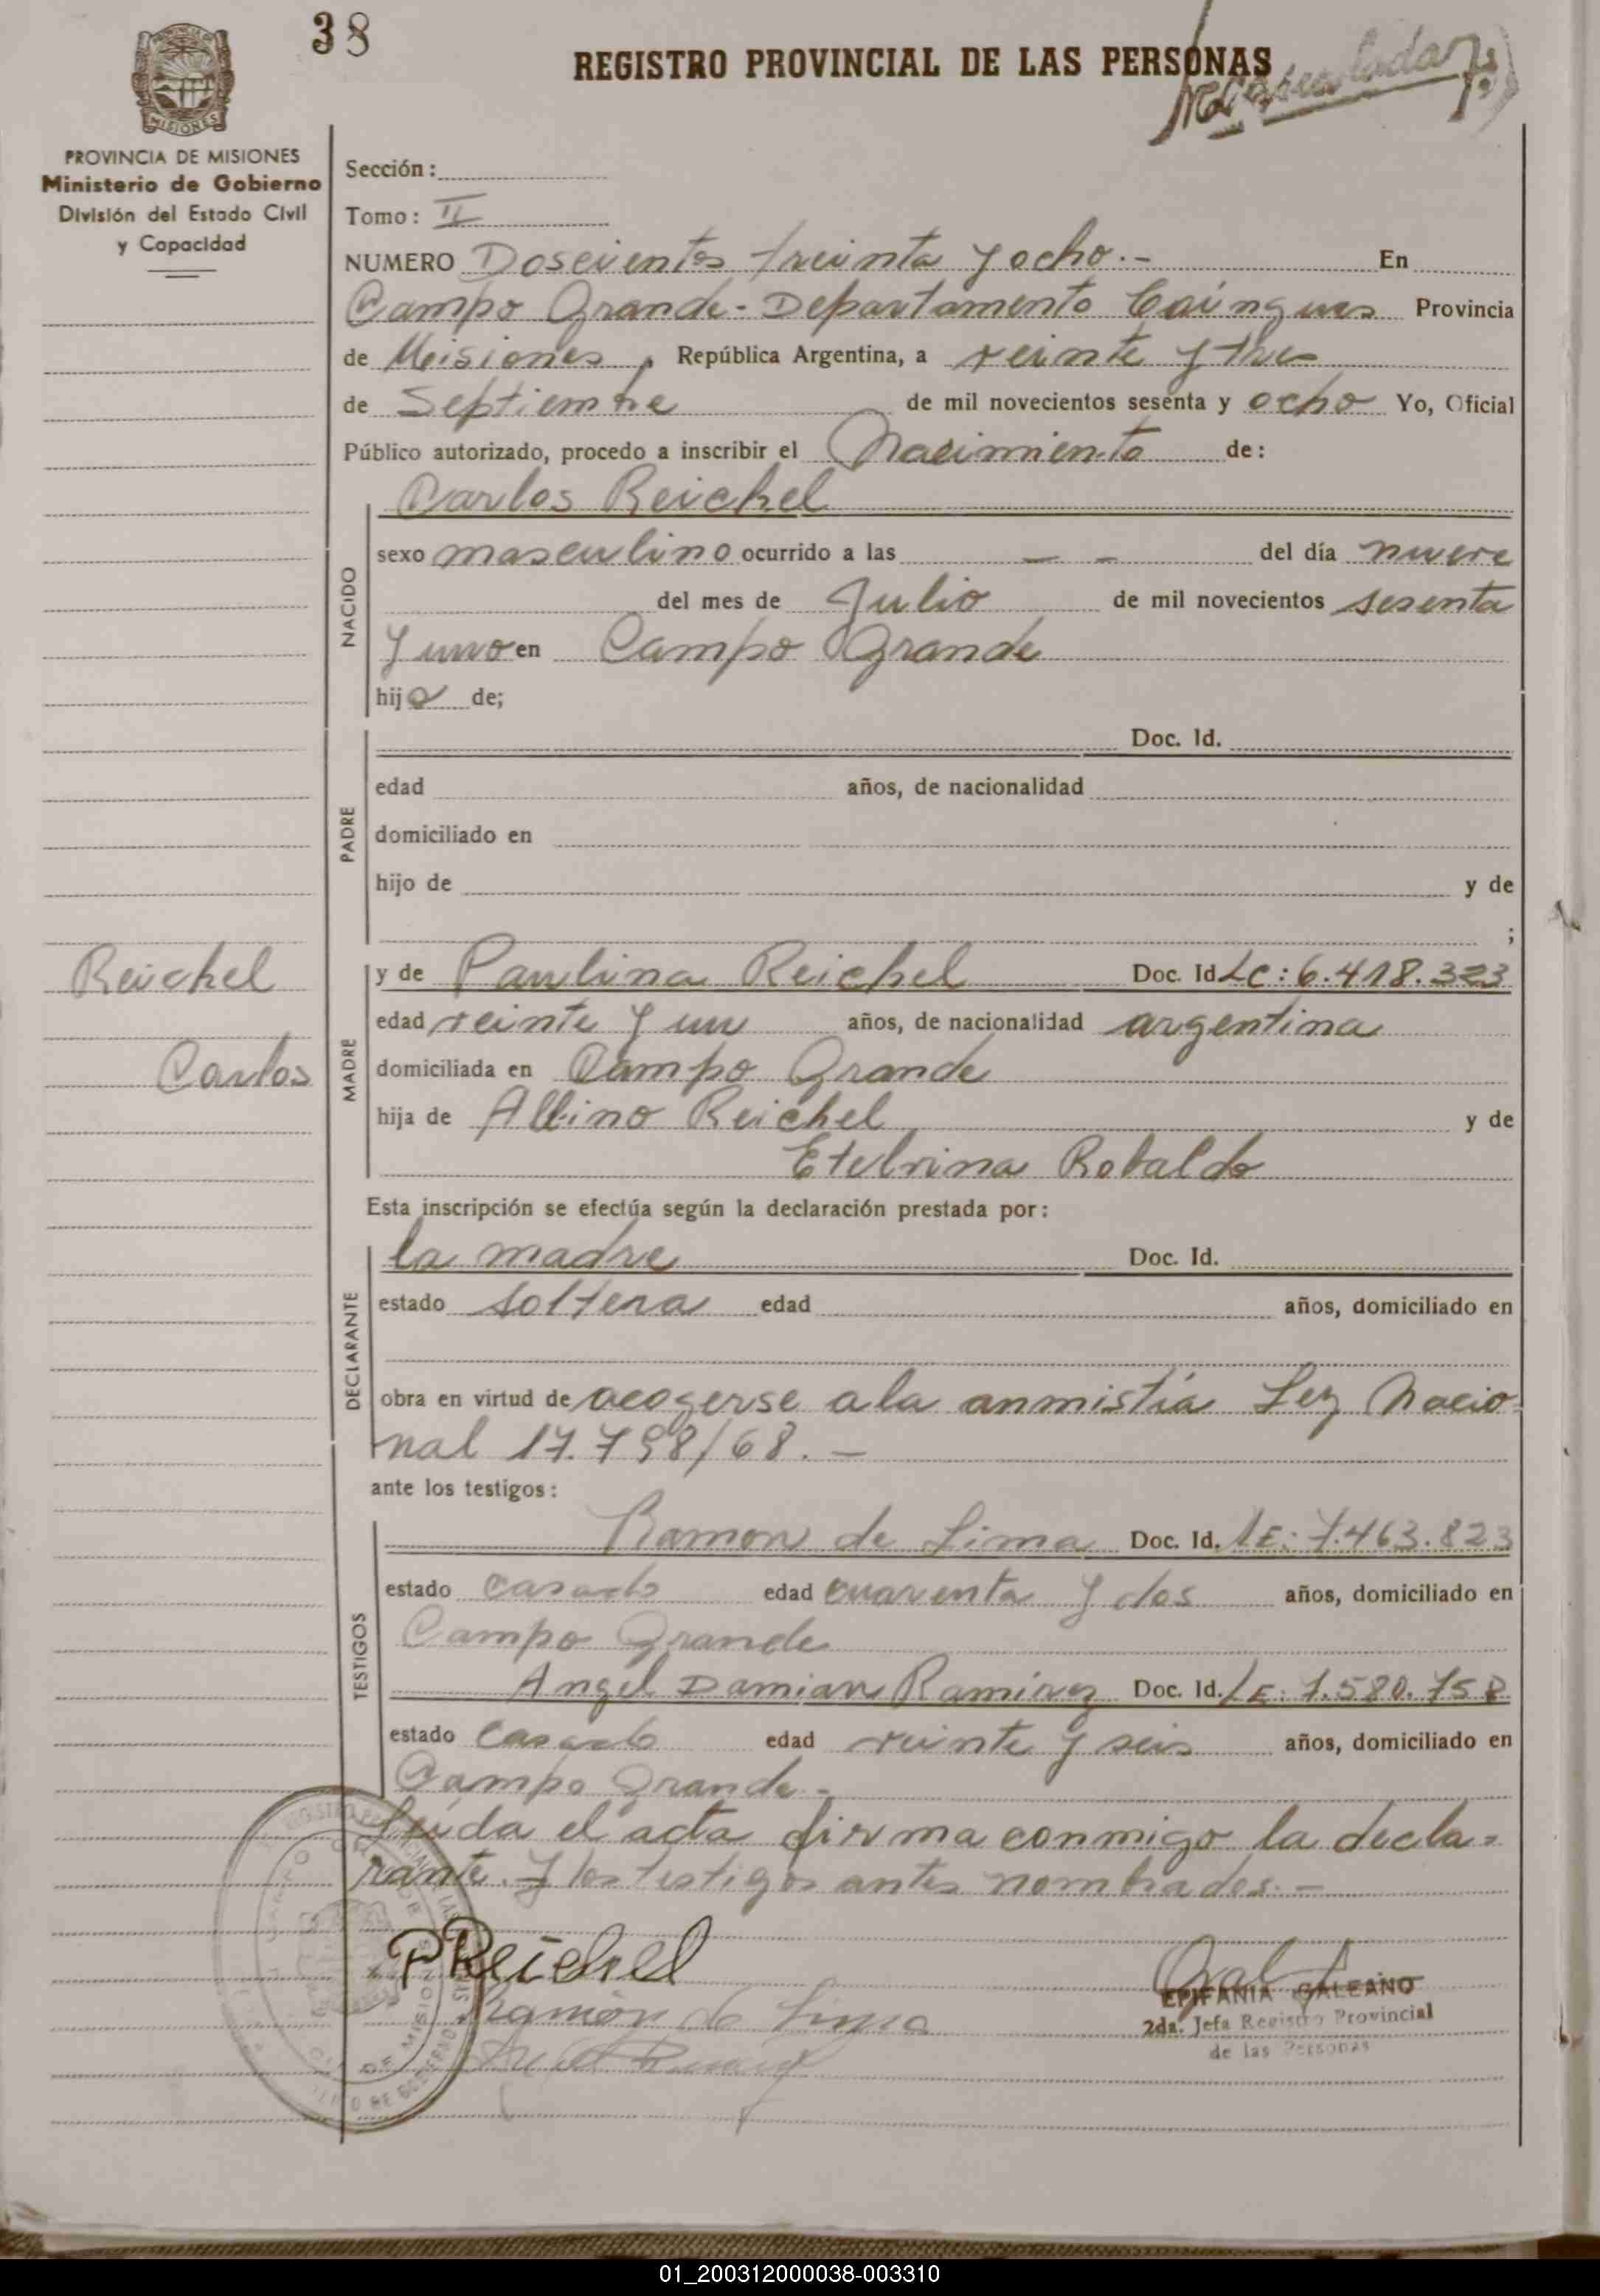 38
REGISTRO PROVINCIAL DE LAS PERSONAS
MISIONES
PROVINCIA DE MISIONES
Ministerio de Gobierno
División del Estado Civil
y Capacidad
Sección:
Tomo: II
NUMERO Doscientos treinta y ocho.- En
Campo Grande - Departamento Cainguas Provincia
de Misiones, República Argentina, a veinte y tres
de Septiembre de mil novecientos sesenta y ocho Yo, Oficial
Público autorizado, procedo a inscribir el Nacimiento de:
Carlos Reichel
NACIDO
sexo masculino ocurrido a las — — del día nueve
del mes de Julio de mil novecientos sesenta
y uno en Campo Grande
hijo de;
PADRE
Doc. Id.
edad años, de nacionalidad
domiciliado en
hijo de y de
;
Reichel
Carlos
MADRE
y de Paulina Reichel Doc. Id LC: 6.418.323
edad veinte y un años, de nacionalidad argentina
domiciliada en Campo Grande
hija de Albino Reichel y de
Etelvina Robaldo
Esta inscripción se efectúa según la declaración prestada por:
DECLARANTE
la madre Doc. Id.
estado soltera edad años, domiciliado en
obra en virtud de acogerse a la anmistía Ley Nacio
nal 17.798/68.—
ante los testigos:
TESTIGOS
Ramon de Lima Doc. Id. LE: 7.463.823
estado casado edad cuarenta y dos años, domiciliado en
Campo Grande
Angel Damian Ramirez Doc. Id. LE: 7.580.758
estado casado edad veinte y seis años, domiciliado en
Campo Grande-
Leída el acta firma conmigo la decla-
rante. y los testigos antes nombrados.—
PReichel
Ramón de Lima
EPIFANIA GALEANO
2da. Jefa Registro Provincial
de las Personas
01_200312000038-003310